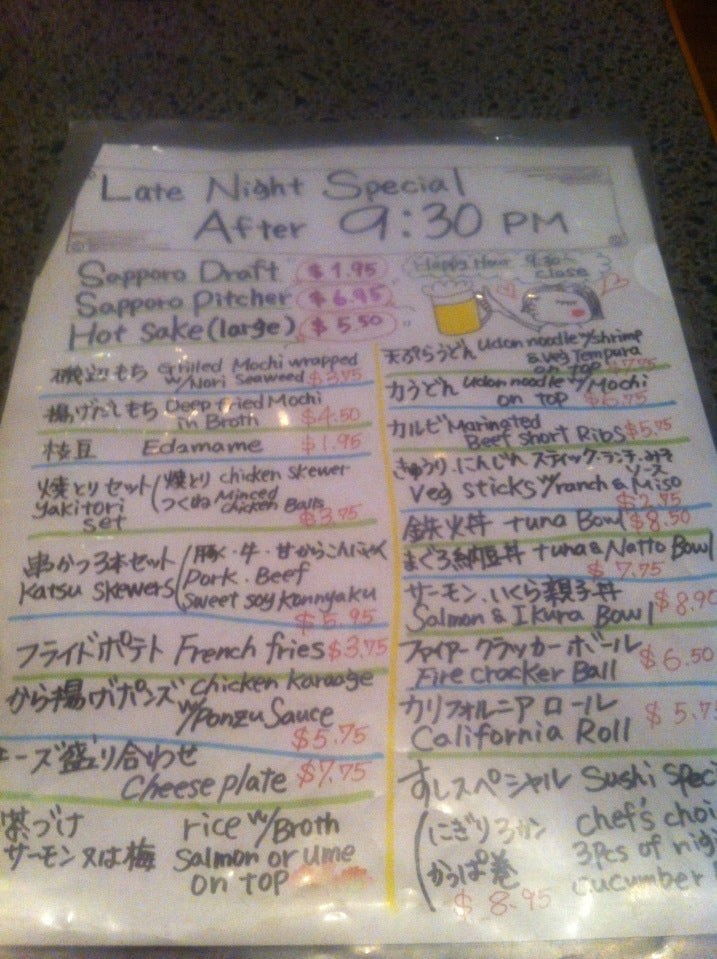 Late Night Special
After 9:30 PM
Sapporo Draft $1.95
Sapporo Pitcher $6.95
Hot Sake (large) $5.50
Happy Hour 9:30~
close
磯辺もち Grilled Mochi wrapped
w/Nori Seaweed $3.75
揚げだしもち Deep fried Mochi
in Broth $4.50
枝豆 Edamame $1.95
焼とりセット 焼とり chicken skewer
Yakitori つくね Minced
set chicken Balls $3.75
串かつ3本セット 豚・牛・甘からこんにゃく
Katsu Skewers Pork. Beef
sweet soy Konnyaku
$5.95
フライドポテト French fries $3.75
から揚げポンズ chicken karaage
w/Ponzu Sauce
$5.75
チーズ盛り合わせ
Cheese plate $7.75
茶づけ rice w/Broth
サーモン又は梅 Salmon or ume
on top
天ぷらうどん udon noodle w/shrimp
& veg Tempura
on top $7.75
力うどん udon noodle w/Mochi
on top $6.75
カルビ Marinated
Beef short Ribs $5.75
きゅうり.にんじん スティック・ランチ・みそ
ソース
veg sticks w/ranch & Miso
$2.75
鉄火丼 tuna Bowl $8.50
まぐろ納豆丼 tuna & Natto Bowl
$7.75
サーモン.いくら親子丼
Salmon & Ikura Bowl $8.90
ファイアー クラッカー ボール
Fire cracker Ball $6.50
カリフォルニア ロール
California Roll $5.7
すしスペシャル Sushi Speci
にぎり3カン chef's choi
かっぱ巻 3pcs of nigi
$8.95 cucumber